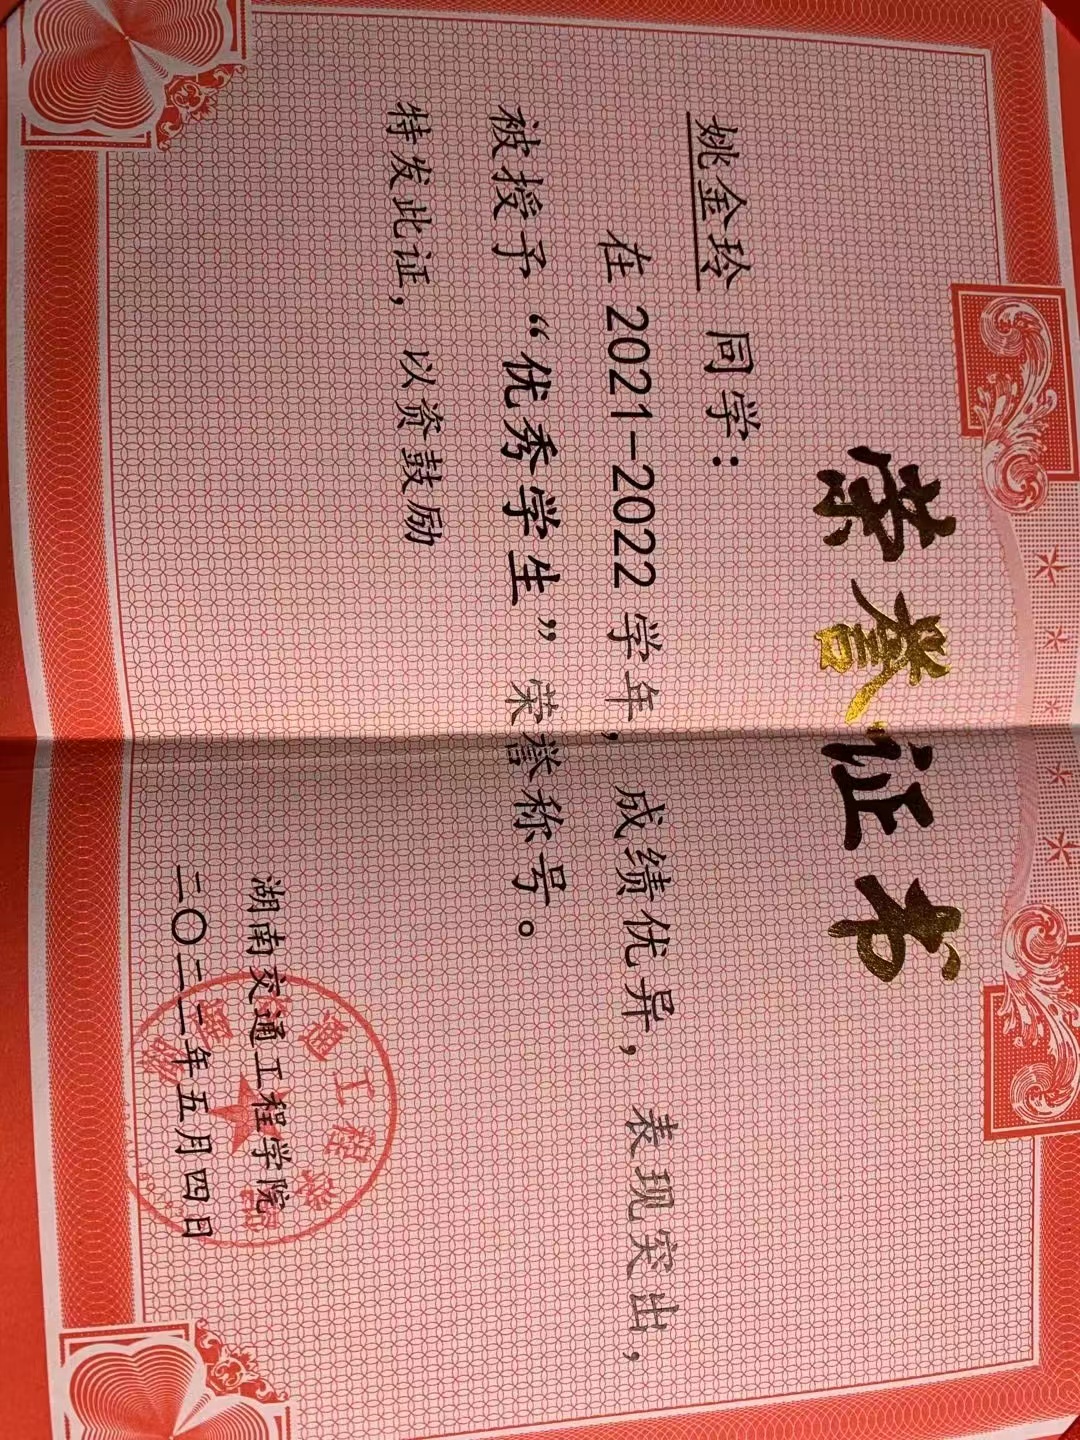 荣誉证书
姚金玲 同学：
在 2021-2022 学年，成绩优异，表现突出，
被授予“优秀学生”荣誉称号。
特发此证，以资鼓励
湖南交通工程学院
二〇二二年五月四日